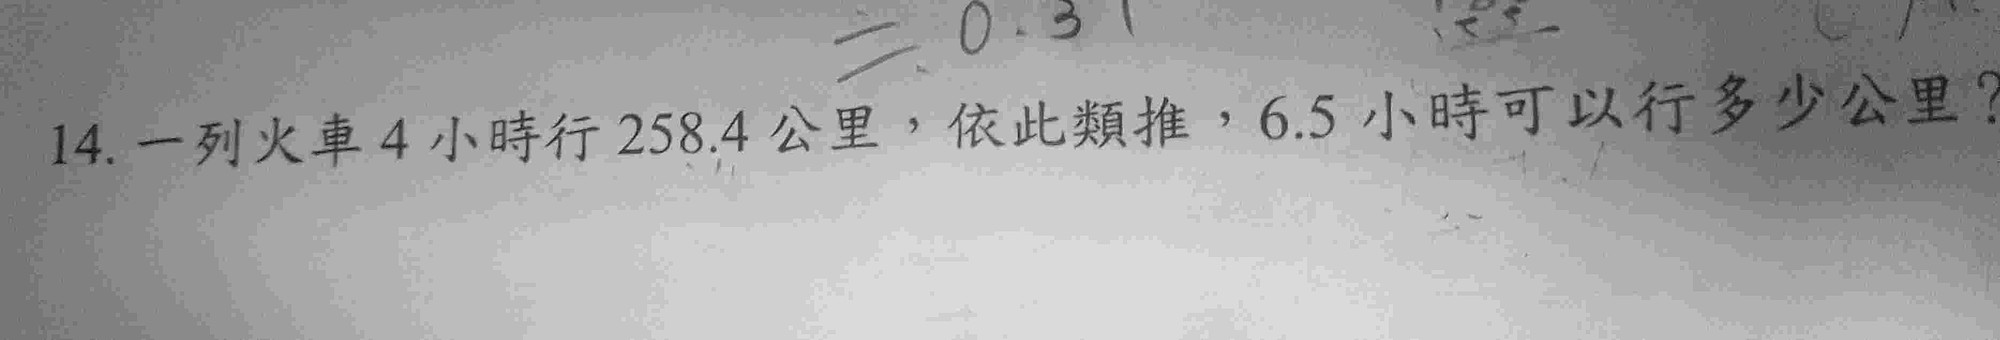 = 0.31
14. 一列火車 4 小時行 258.4 公里，依此類推，6.5 小時可以行多少公里？